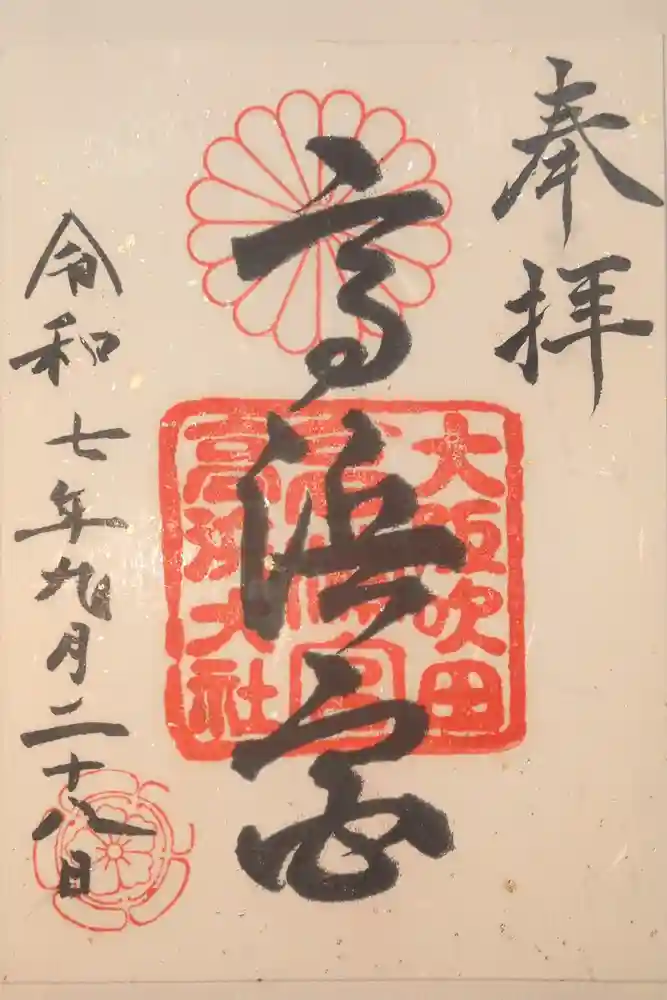 奉拝
高浜宮
大阪吹田
高浜大社
令和七年九月二十八日